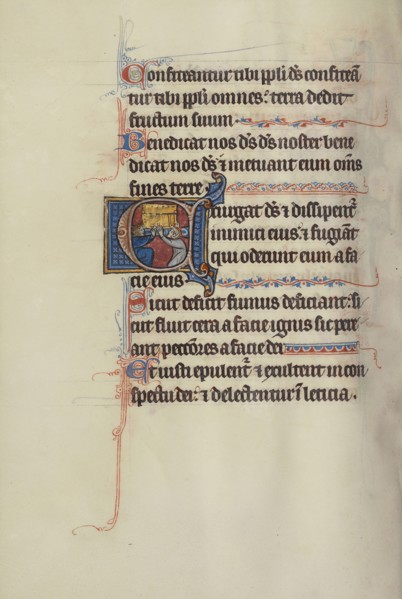 Confiteantur tibi ppli ds confitea
tur tibi ppli omnes: terra dedit
fructum suum
Benedicat nos ds ds noster bene
dicat nos ds ⁊ metuant eum oms
fines terre
Exurgat ds ⁊ dissipent
inimici eius: ⁊ fugiant
qui oderunt eum a fa
cie eius
Sicut deficit fumus deficiant: si
cut fluit cera a facie ignis sic pere
ant peccores a facie dei
Et iusti epulent ⁊ exultent in con
spectu dei: ⁊ delectentur i leticia.